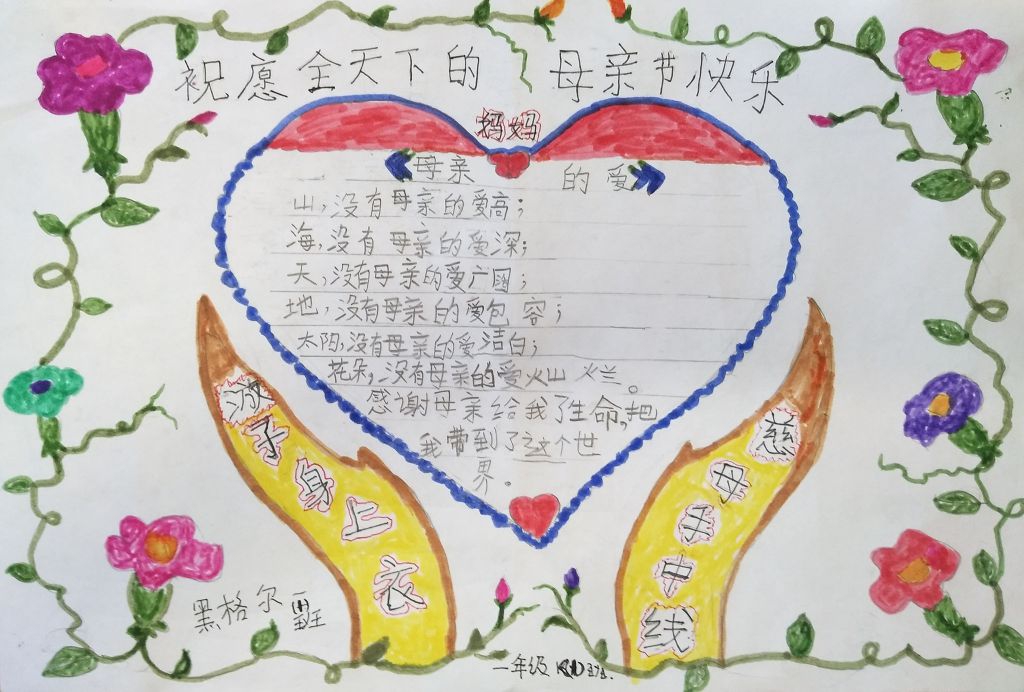 祝愿全天下的 母亲节快乐
妈妈
母亲 的爱
山,没有母亲的爱高;
海,没有母亲的爱深;
天,没有母亲的爱广阔;
地,没有母亲的爱包容;
太阳,没有母亲的爱洁白;
花朵,没有母亲的爱火山 火兰。
感谢母亲给我了生命,把
我带到了这个世
界。
慈母手中线
子身上衣
黑格尔
一年级